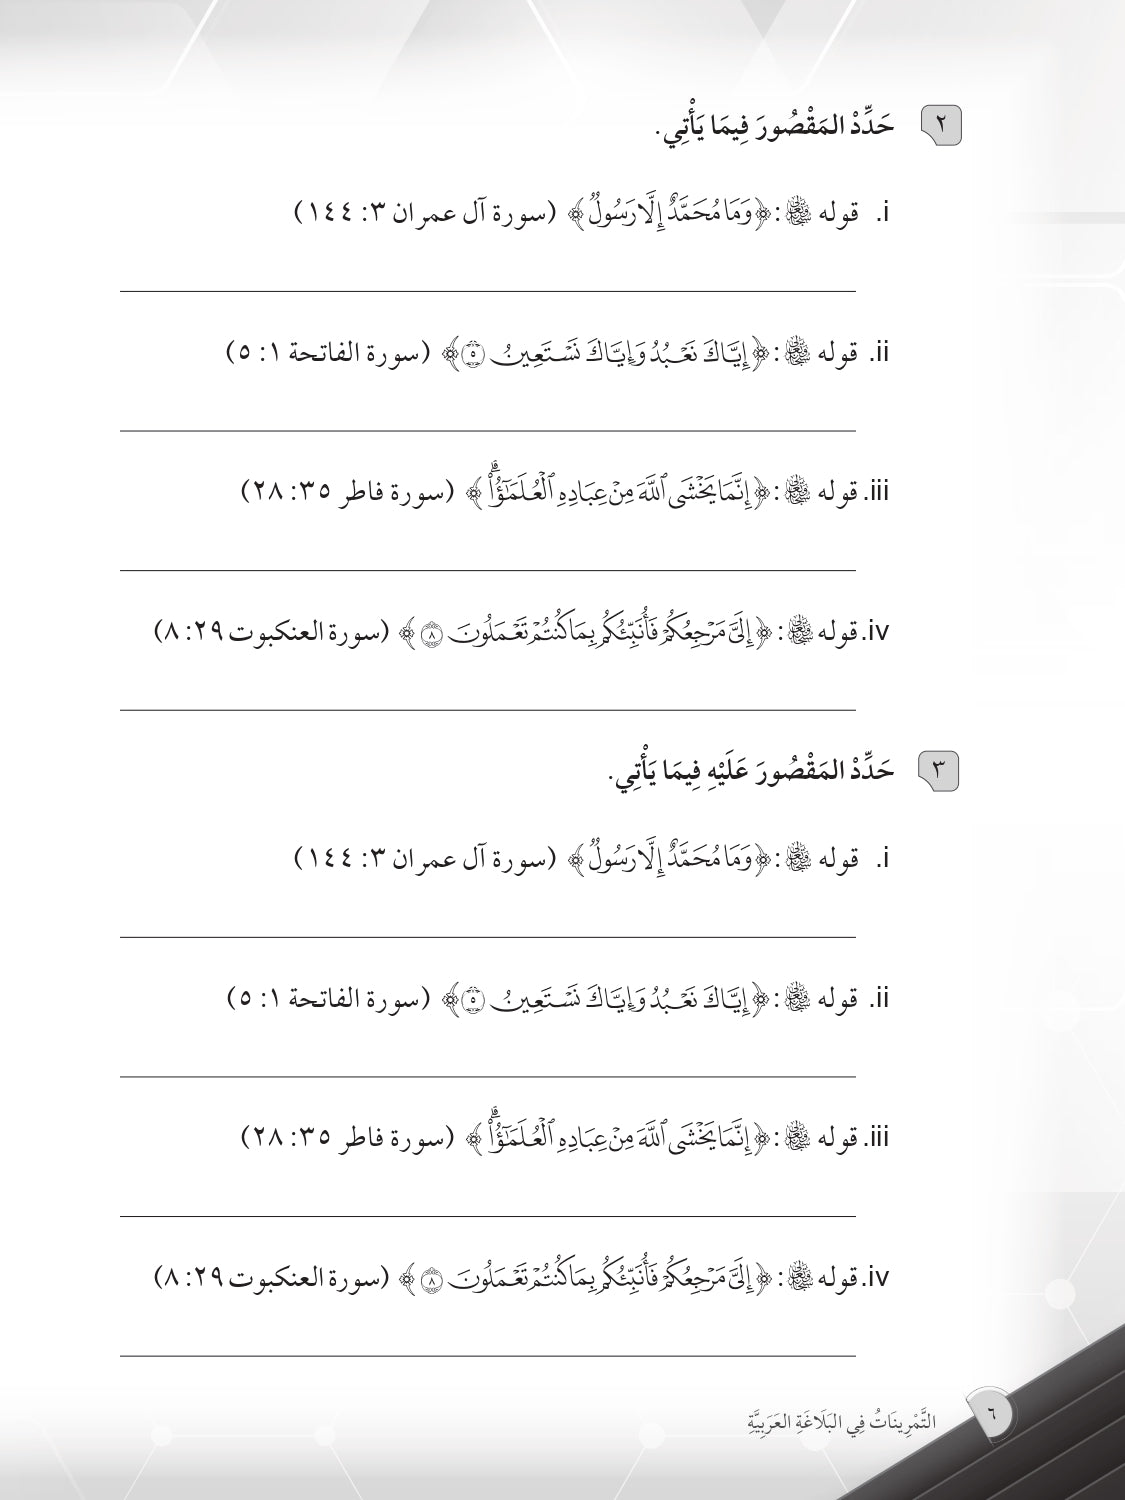 ٢ حَدِّدْ المَقْصُورَ فِيمَا يَأْتِي.
i. قوله ﷻ: ﴿وَمَا مُحَمَّدٌ إِلَّا رَسُولٌ﴾ (سورة آل عمران ٣: ١٤٤)
ii. قوله ﷻ: ﴿إِيَّاكَ نَعْبُدُ وَإِيَّاكَ نَسْتَعِينُ ٥﴾ (سورة الفاتحة ١: ٥)
iii. قوله ﷻ: ﴿إِنَّمَا يَخْشَى ٱللَّهَ مِنْ عِبَادِهِ ٱلْعُلَمَٰٓؤُا۟ ۗ﴾ (سورة فاطر ٣٥: ٢٨)
iv. قوله ﷻ: ﴿إِلَىَّ مَرْجِعُكُمْ فَأُنَبِّئُكُم بِمَا كُنتُمْ تَعْمَلُونَ ٨﴾ (سورة العنكبوت ٢٩: ٨)
٣ حَدِّدْ المَقْصُورَ عَلَيْهِ فِيمَا يَأْتِي.
i. قوله ﷻ: ﴿وَمَا مُحَمَّدٌ إِلَّا رَسُولٌ﴾ (سورة آل عمران ٣: ١٤٤)
ii. قوله ﷻ: ﴿إِيَّاكَ نَعْبُدُ وَإِيَّاكَ نَسْتَعِينُ ٥﴾ (سورة الفاتحة ١: ٥)
iii. قوله ﷻ: ﴿إِنَّمَا يَخْشَى ٱللَّهَ مِنْ عِبَادِهِ ٱلْعُلَمَٰٓؤُا۟ ۗ﴾ (سورة فاطر ٣٥: ٢٨)
iv. قوله ﷻ: ﴿إِلَىَّ مَرْجِعُكُمْ فَأُنَبِّئُكُم بِمَا كُنتُمْ تَعْمَلُونَ ٨﴾ (سورة العنكبوت ٢٩: ٨)
٦ التَّمْرِينَاتُ فِي البَلَاغَةِ العَرَبِيَّةِ